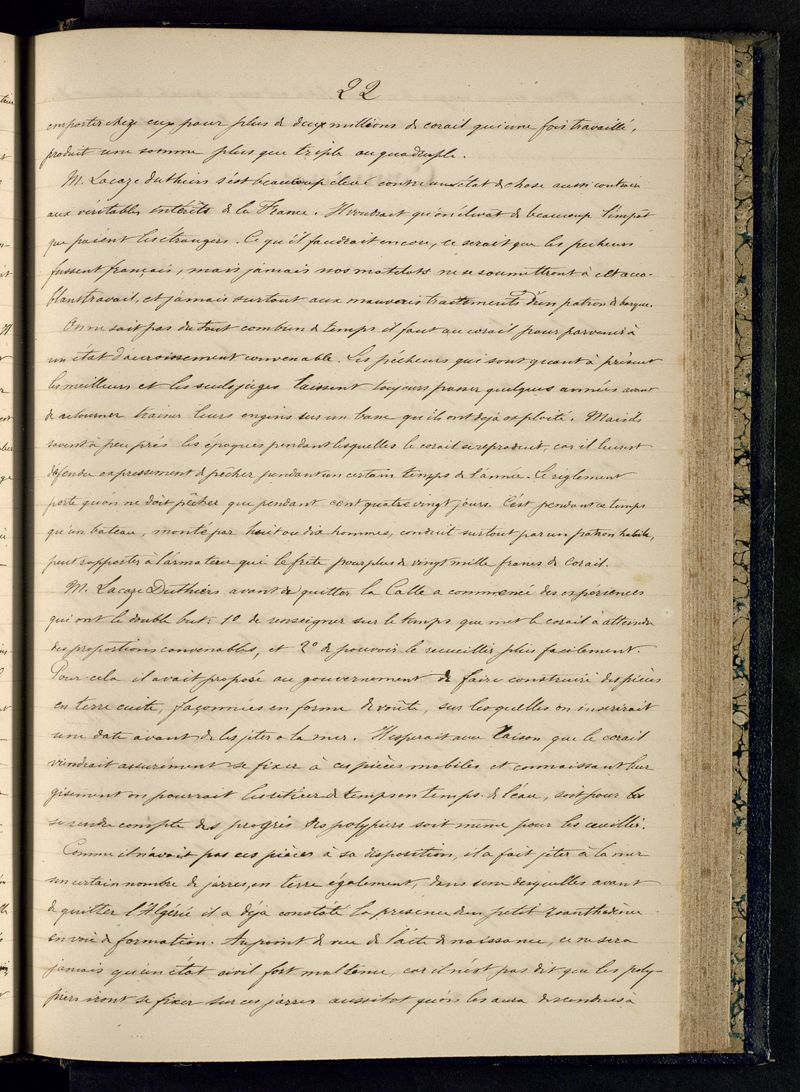 22
emporter chez eux pour plus de deux millions de corail qui une fois travaillé,
produit une somme plus que triple ou quadruple.
M. Lacaze Duthiers s'est beaucoup élevé contre un état de chose aussi contraire
aux véritables intérêts de la France. Il voudrait qu'on élevât de beaucoup l'impôt
que paient les étrangers. Ce qu'il faudrait encore, ce serait que les pecheurs
fussent français, mais jamais nos matelots ne se soumettront à cet acca-
blant travail, et jamais surtout aux mauvais traitements d'un patron de barque.
On ne sait pas du tout combien de temps il faut au corail pour parvenir à
un état d'accroissement convenable. Les pêcheurs qui sont quant à présent
les meilleurs et les seuls juges laissent toujours passer quelques années avant
de retourner trainer leurs engins sur un banc qu'ils ont déjà exploité. Mais ils
savent à peu près les époques pendant lesquelles le corail se reproduit, car il leur est
défendu expressement de pêcher pendant un certain temps de l'année. Le règlement
porte qu'on ne doit pêcher que pendant cent quatre vingt jours. C'est pendant ce temps
qu'un bateau, monté par huit ou dix hommes, conduit surtout par un patron habile,
peut rapporter à l'armateur qui le frète pour plus de vingt mille francs de corail.
M. Lacaze Duthiers avant de quitter la Calle a commencé des expériences
qui ont le double but: 1º de renseigner sur le temps que met le corail à atteindre
des proportions convenables, et 2º de pouvoir le recueillir plus facilement.
Pour cela il avait proposé au gouvernement de faire construire des pièces
en terre cuite, façonnées en forme de voûte, sur lesquelles on inscrirait
une date avant de les jeter à la mer. Il espérait avec raison que le corail
viendrait assurément se fixer à ces pièces mobiles et connaissant leur
gisement on pourrait les retirer de temps en temps de l'eau, soit pour
se rendre compte des progrès des polypiers soit même pour les cueillir.
Comme il n'avait pas ces pièces à sa disposition, il a fait jeter à la mer
un certain nombre de jarres, en terre également, dans une desquelles avant
de quitter l'Algérie il a déjà constaté la présence d'un petit zoanthodème
en voie de formation. Au point de vue de l'acte de naissance, ce ne sera
jamais qu'un état civil fort mal tenu, car il n'est pas dit que les poly-
piers iront se fixer sur ces jarres aussitot qu'on les aura descendues à